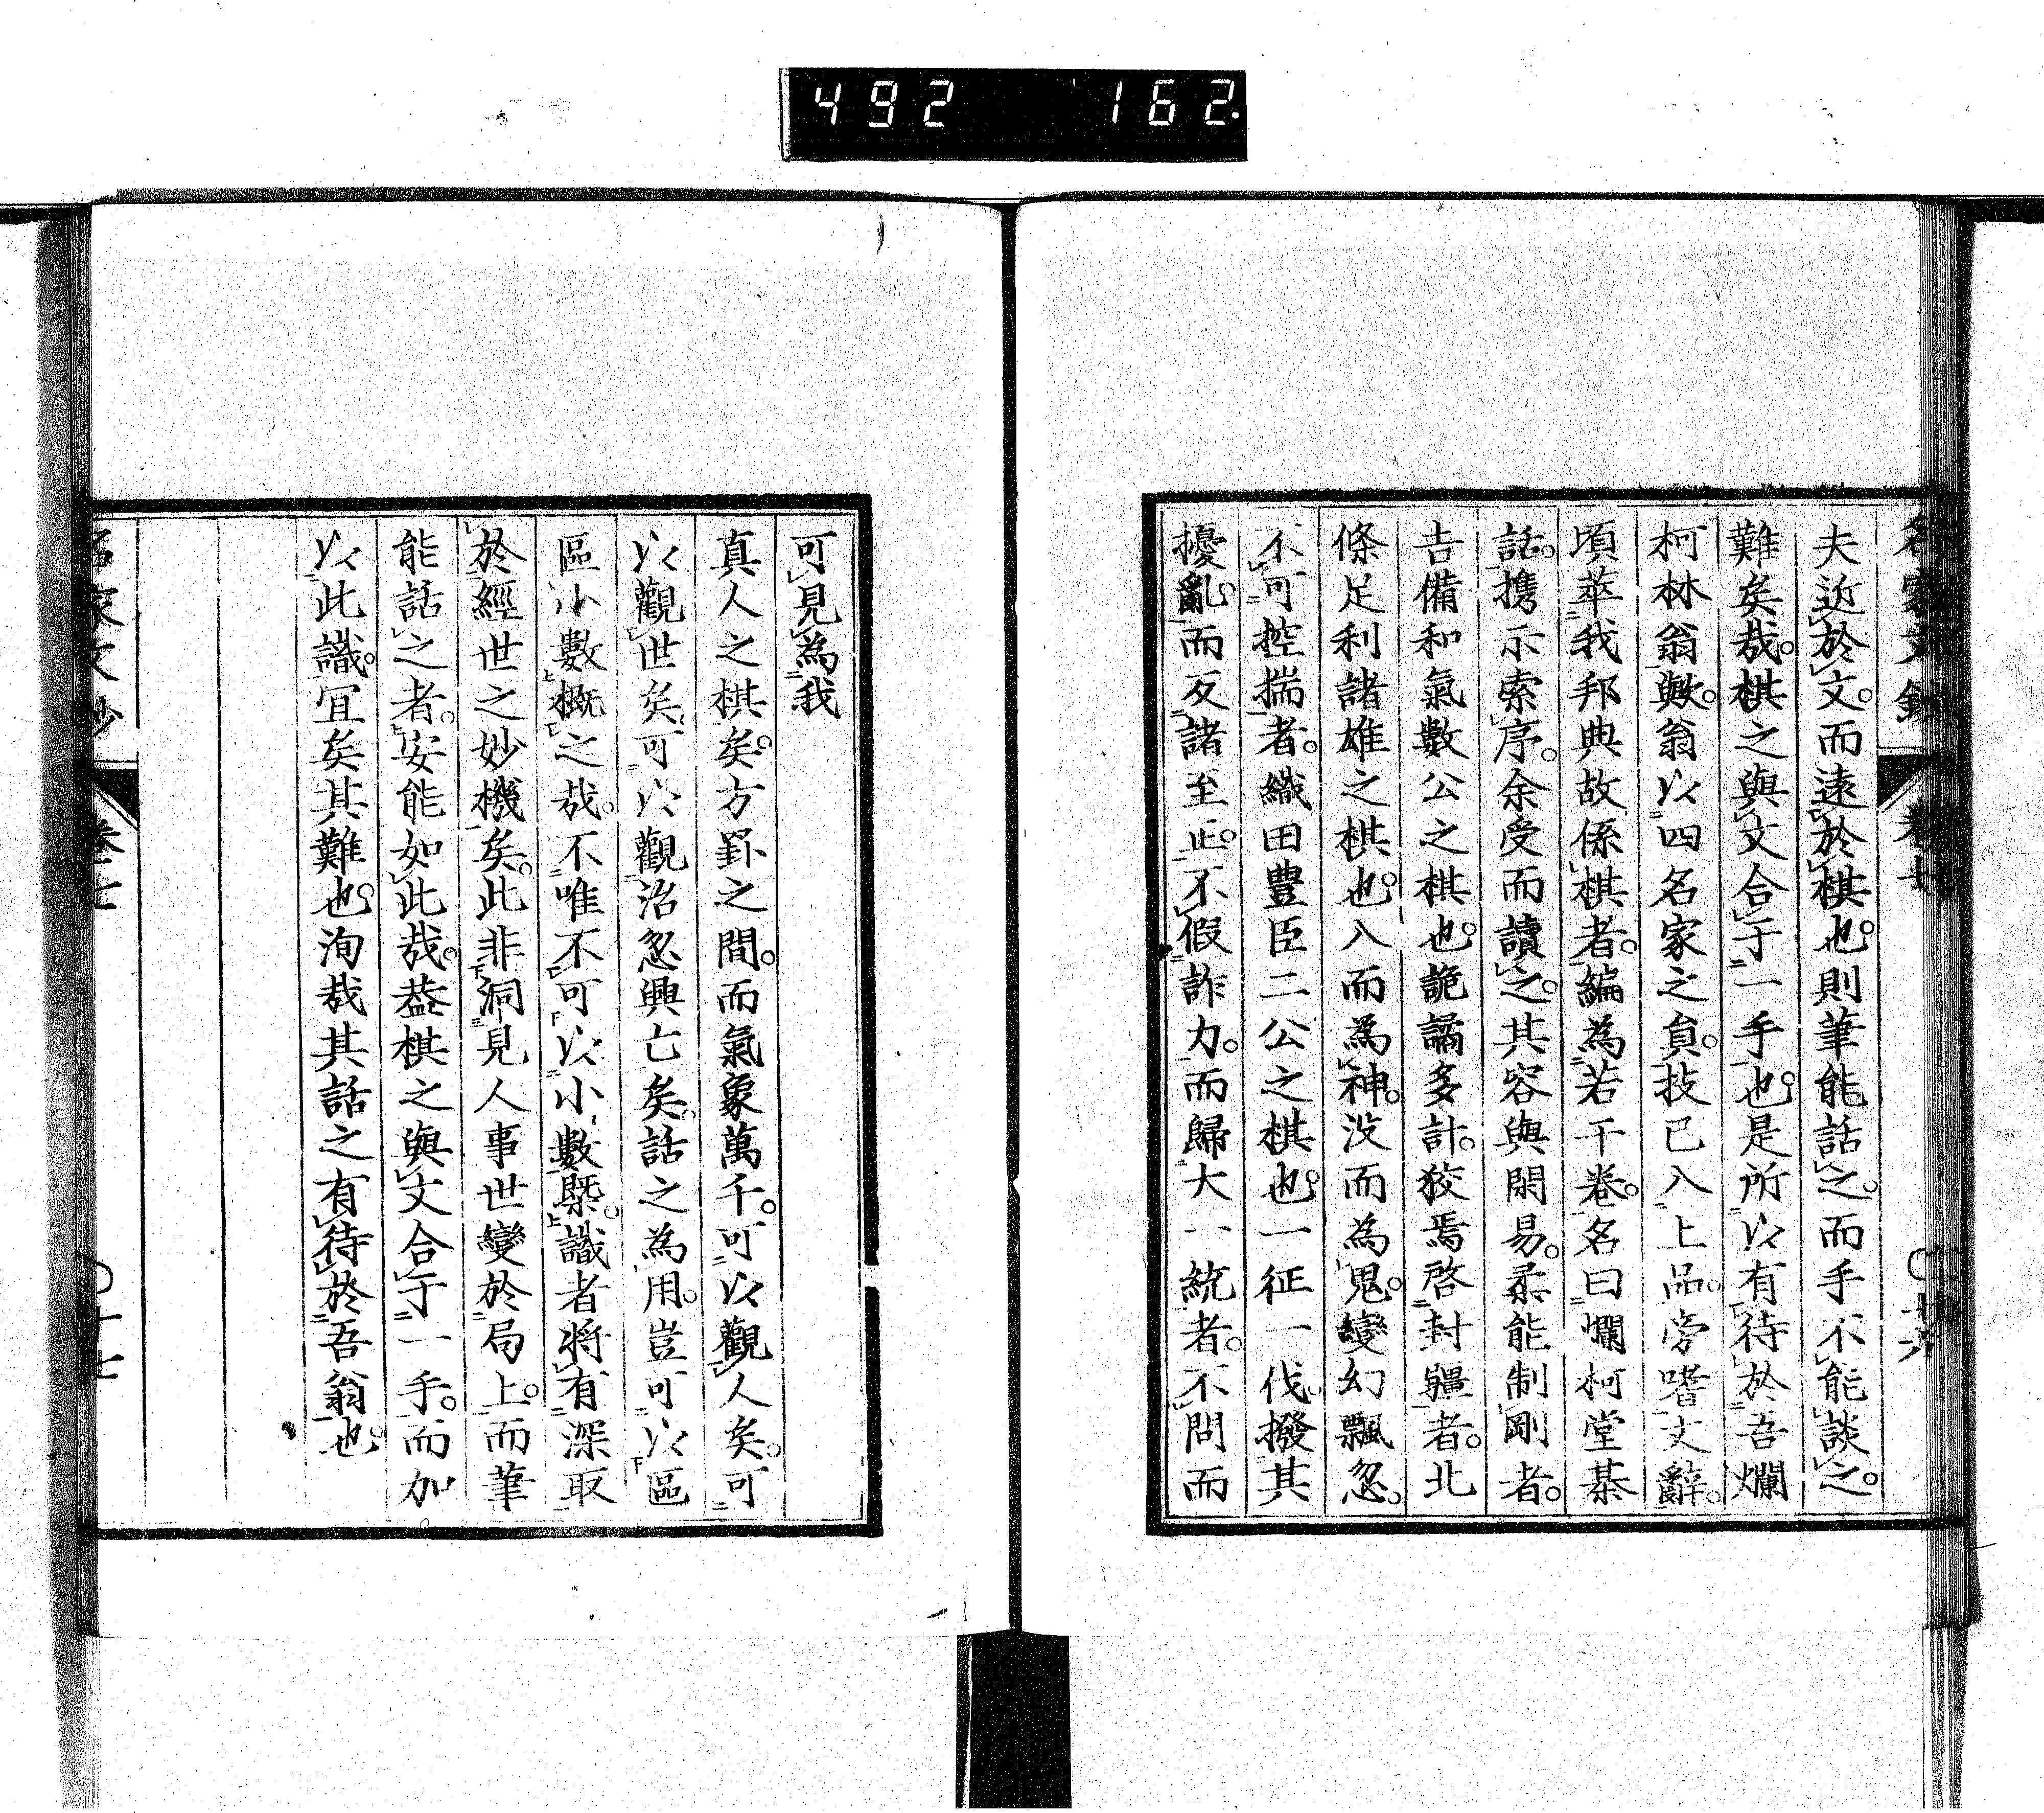 492 162.
夫近於文。而遠於棋也。則筆能話之。而手不能談之。
難矣哉。棋之與文合于一手也。是所以有待於吾爛
柯林翁歟。翁以四名家之員。技已入上品。旁嗜文辭。
頃萃我邦典故係棋者。編為若干卷。名曰爛柯堂棊
話。携示索序。余受而讀之。其容與閑易。柔能制剛者。
吉備和氣數公之棋也。詭譎多計。狡焉啓封疆者。北
條足利諸雄之棋也。入而為神。沒而為鬼。變幻飄忽。
不可控揣者。織田豊臣二公之棋也。一征一伐。撥其
擾亂。而反諸至正。不假詐力。而歸大一統者。不問而
可見為我
真人之棋矣。方罫之間。而氣象萬千。可以觀人矣。可
以觀世矣。可以觀治忽興亡矣。話之為用。豈可以區
區小數概之哉。不唯不可以小數槩。識者將有深取
於經世之妙機矣。此非洞見人事世變於局上。而筆
能話之者。安能如此哉。葢棋之與文合于一手。而加
以此識。宜矣其難也。洵哉其話之有待於吾翁也。
名家文鈔 卷七 〇十七